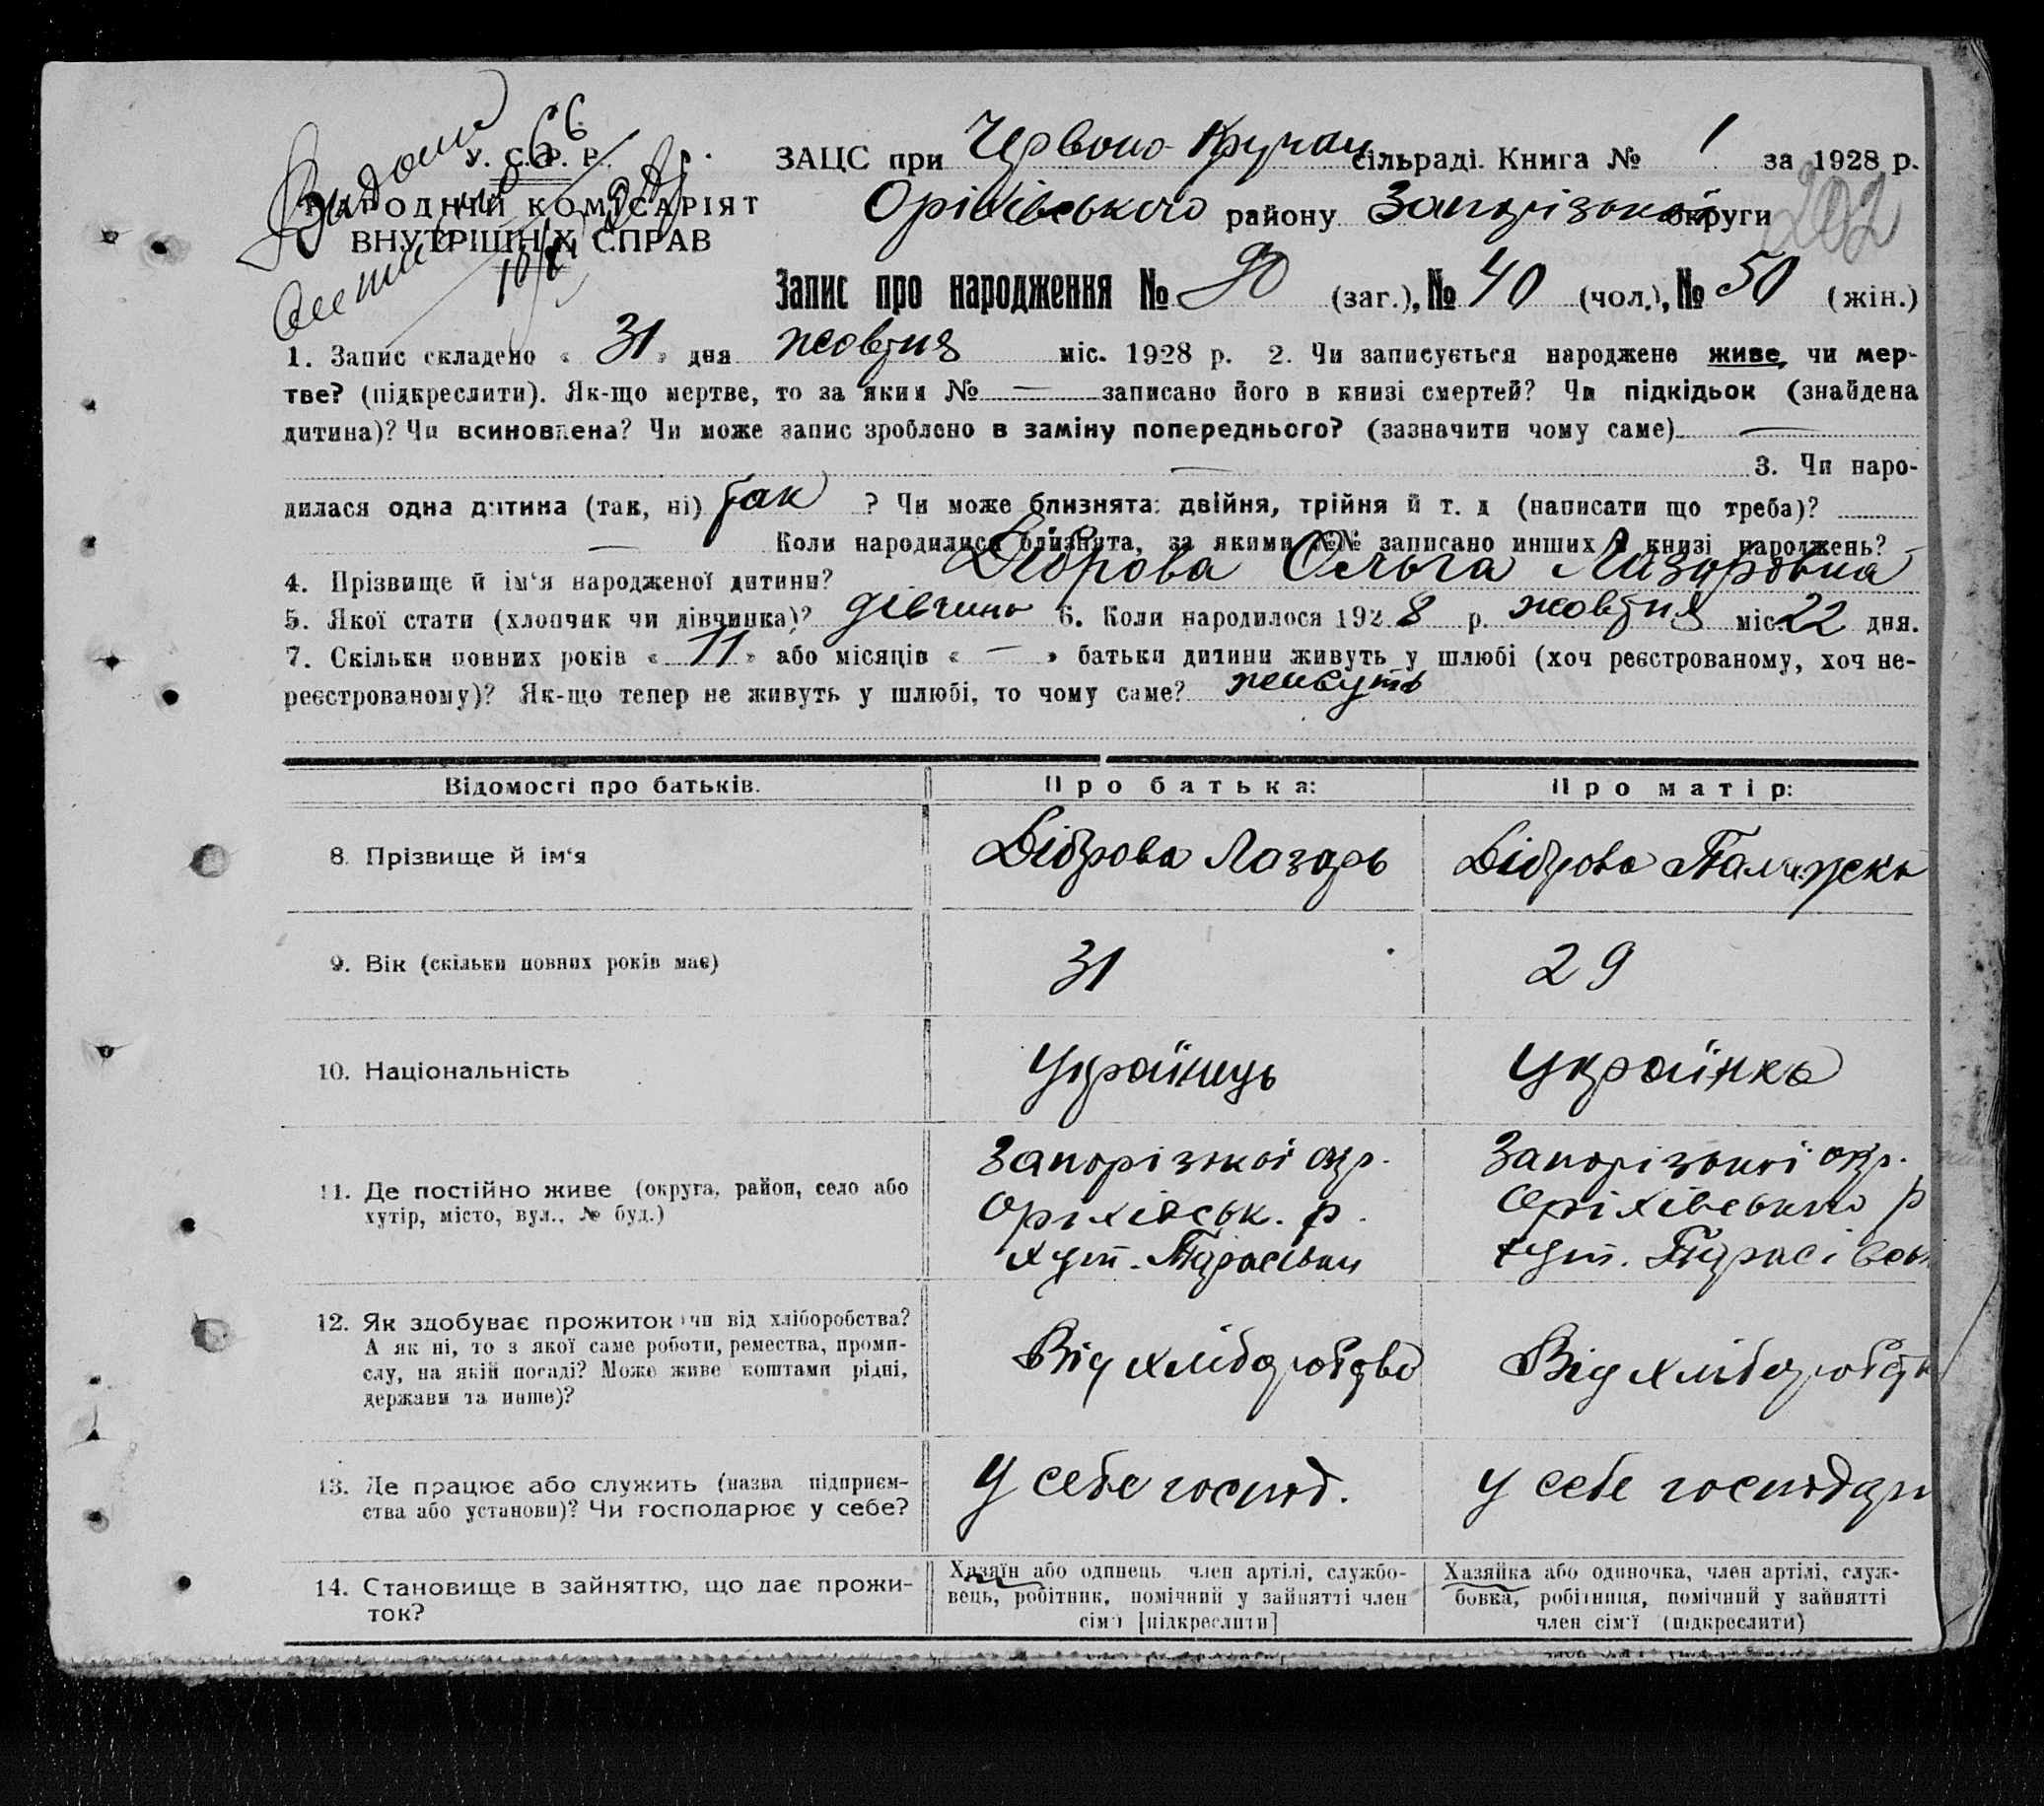 У. С. Р. Р.
НАРОДНІЙ КОМІСАРІЯТ
ВНУТРІШНІХ СПРАВ
ЗАЦС при Червоно сільраді. Книга № 1 за 1928 р.
Оріхівського району Запорізької округи
202
Запис про народження № 90 (заг.), № 40 (чол.), № 50 (жін.)
1. Запис складено « 31 » дня жовтня міс. 1928 р. 2. Чи записується народжене живе, чи мер-
тве? (підкреслити). Як-що мертве, то за яким № — записано його в книзі смертей? Чи підкідьок (знайдена
дитина)? Чи всиновлена? Чи може запис зроблено в заміну попереднього? (зазначити чому саме) —
— 3. Чи наро-
дилася одна дитина (так, ні) так ? Чи може близнята: двійня, трійня й т. д (написати що треба)?
— Коли народилися близнята, за якими №№ записано инших в книзі народжень? —
4. Прізвище й ім‘я народженої дитини? Діброва Ольга Лазаровна
5. Якої стати (хлопчик чи дівчинка)? дівчина 6. Коли народилося 1928 р. жовтня міс. 22 дня.
7. Скільки повних років « 11 » або місяців « — » батьки дитини живуть у шлюбі (хоч реєстрованому, хоч не-
реєстрованому)? Як-що тепер не живуть у шлюбі, то чому саме? живуть
Відомості про батьків. Про батька: Про матір:
8. Прізвище й ім‘я Діброва Лазарь Діброва
9. Вік (скільки повних років має) 31 29
10. Національність Українець Українка
11. Де постійно живе (округа, район, село або
хутір, місто, вул., № буд.)
Запорізької окр.
Оріхівськ. р.
хут.
Запорізької окр.
Оріхівського р
хут.
12. Як здобуває прожиток чи від хліборобства?
А як ні, то з якої саме роботи, ремества, проми-
слу, на якій посаді? Може живе коштами рідні,
держави та инше)?
Від хліборобства
Від хліборобств
13. Де працює або служить (назва підприєм-
ства або установи)? Чи господарює у себе?
У себе господ.
У себе господар
14. Становище в зайняттю, що дає прожи-
ток?
Хазяїн або одинець член артілі, службо-
вець, робітник, помічний у зайнятті член
сім'ї [підкреслити]
Хазяйка або одиночка, член артілі, служ-
бовка, робітниця, помічний у зайнятті
член сім'ї (підкреслити)